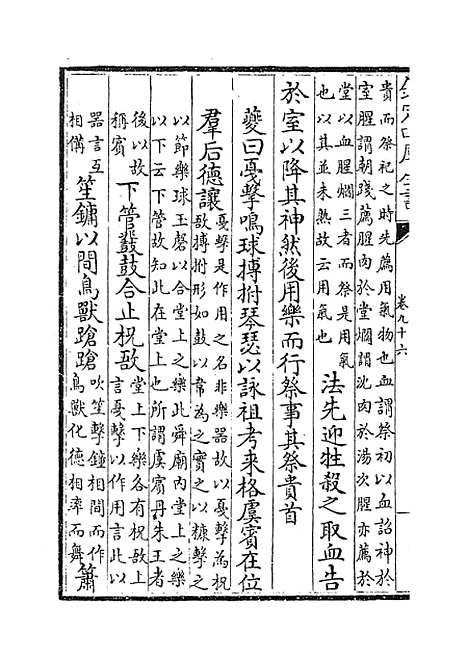 欽定四庫全書
卷九十六
貴而祭祀之時先薦用氣物也血謂祭初以血詔神於
室腥謂朝踐薦腥肉於堂爓謂沈肉於湯次腥亦薦於
堂以血腥爓三者而祭是用氣
也以其並未熟故云用氣也
法先迎牲殺之取血告
於室以降其神然後用樂而行祭事其祭貴首
夔曰戛擊鳴球搏拊琴瑟以詠祖考来格虞賓在位
羣后德讓
戛擊是作用之名非樂器故以戛擊為柷
敔搏拊形如鼓以韋為之實之以糠擊之
以節樂球玉磬以合堂上之樂此舜廟内堂上之樂
以下云下管故知此在堂上也所謂虞賓丹朱王者
後以故
稱賓
下管鼗鼓合止柷敔
堂上下樂各有柷敔上
言戛擊以作用言此以
器言互
相備
笙鏞以間鳥獸蹌蹌
吹笙擊鐘相間而作
鳥獸化德相率而舞
簫